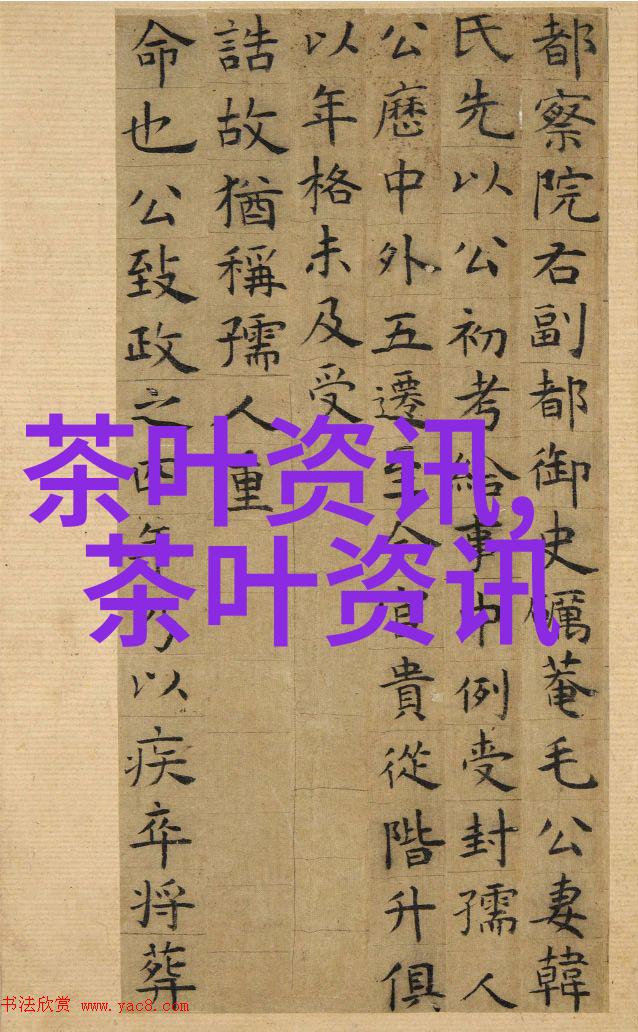 都察院右副都御史厲菴毛公妻韓
氏先以公初考給事中例受封孺人
公歷中外五遷至今官貴從階升俱
以年格未及受
誥故猶稱孺人重
命也公致政之四年乃以疾卒将葬
茶叶资讯,
茶叶资讯
书法欣赏 www.yac8.com